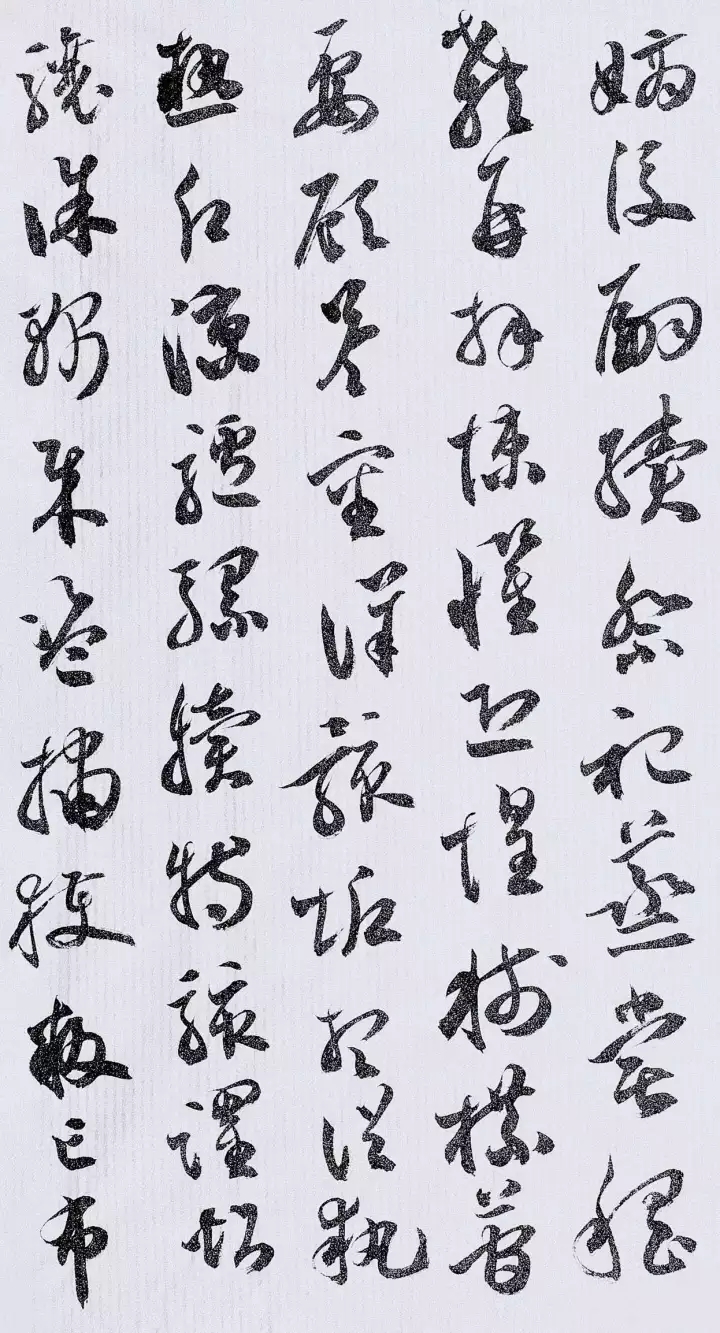 嫡後嗣續祭祀蒸嘗稽
顙再拜悚懼恐惶牋牒簡
要顧答審詳骸垢想浴執
熱願涼驢騾犢特駭躍超
驤誅斬賊盜捕獲叛亡布